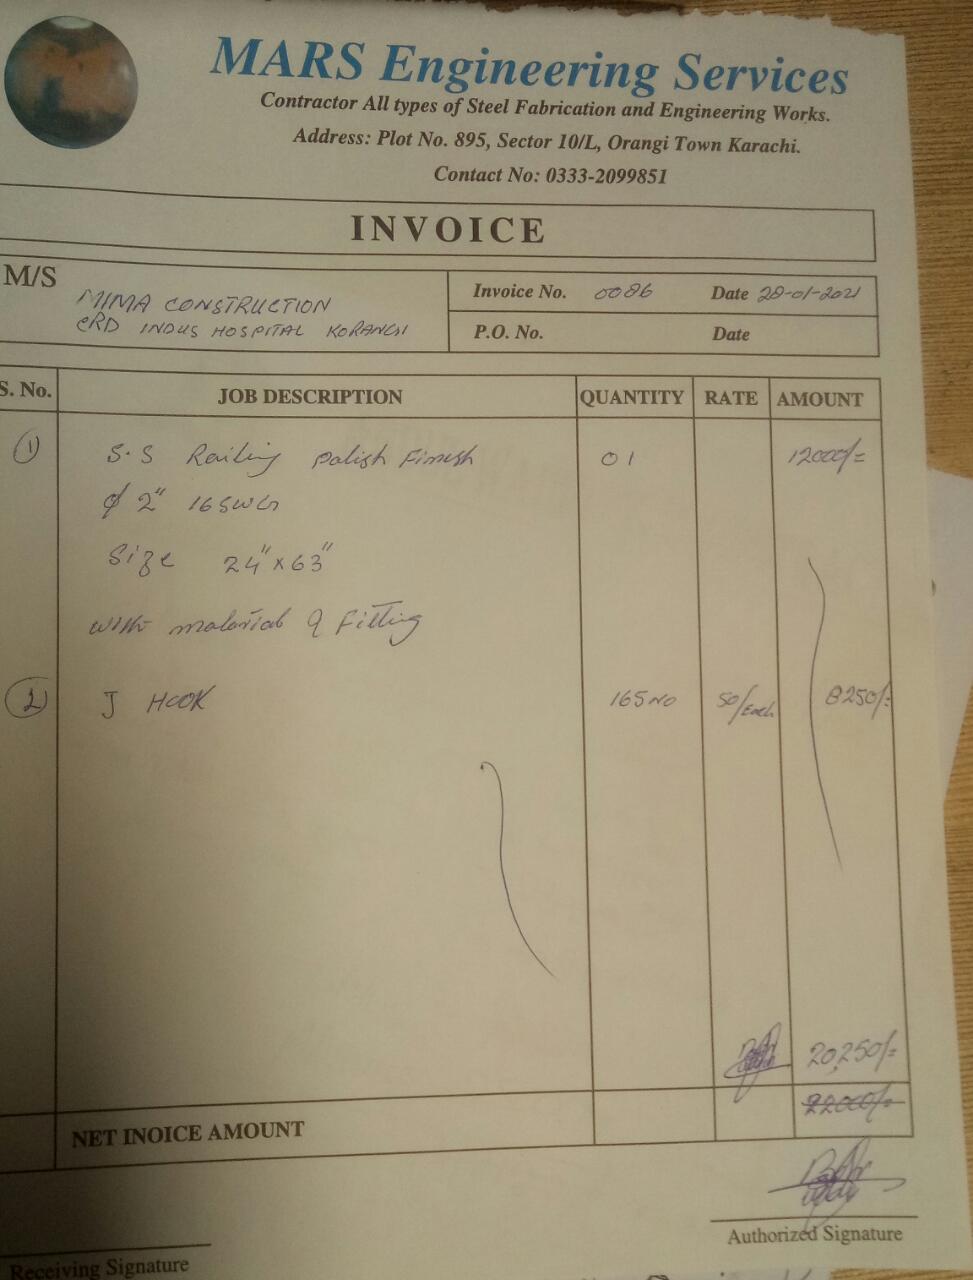 MARS Engineering Services
Contractor All types of Steel Fabrication and Engineering Works.
Address: Plot No. 895, Sector 10/L, Orangi Town Karachi.
Contact No: 0333-2099851
INVOICE
M/S MIMA CONSTRUCTION
CRD INDUS HOSPITAL KORANGI
Invoice No. 0086 Date 28-01-2021
P.O. No. Date
S. No. JOB DESCRIPTION QUANTITY RATE AMOUNT
1 S.S Railing Polish Finish 01 12000/=
ϕ 2" 16 SWG
Size 24" x 63"
with material & Fitting
2 J HOOK 165 NO 50/Each 8250/=
20,250/=
22000/=
NET INOICE AMOUNT
Authorized Signature
Receiving Signature